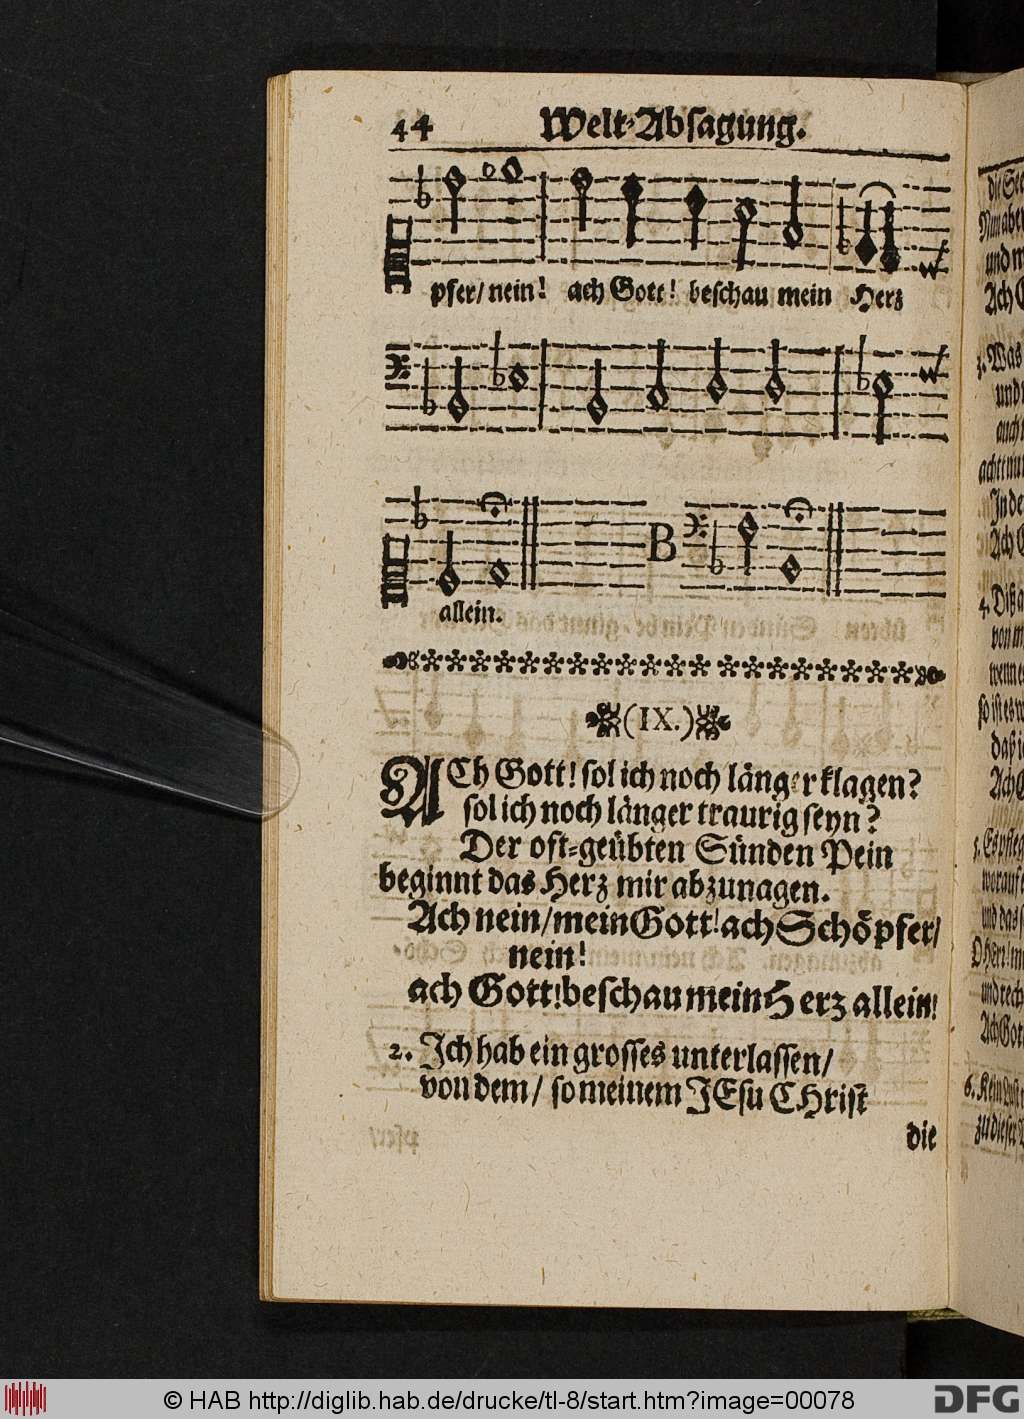 44 Welt-Absagung.
pfer/ nein! ach Gott! beschau mein Herz
B
allein.
(IX.)
ACh Gott! sol ich noch länger klagen?
sol ich noch länger traurig seyn?
Der oft-geübten Sünden Pein
beginnt das Herz mir abzunagen.
Ach nein/ mein Gott! ach Schöpfer/
nein!
ach Gott! beschau mein Herz allein!
2. Ich hab ein grosses unterlassen/
von dem/ so meinem JEsu CHrist
die
die
und
Ach
3. Was
und
4. Diß
von
so ist es
daß
Ach
5.
und das
Ach Gott
6. Kein
zu dieser
© HAB http://diglib.hab.de/drucke/tl-8/start.htm?image=00078
DFG